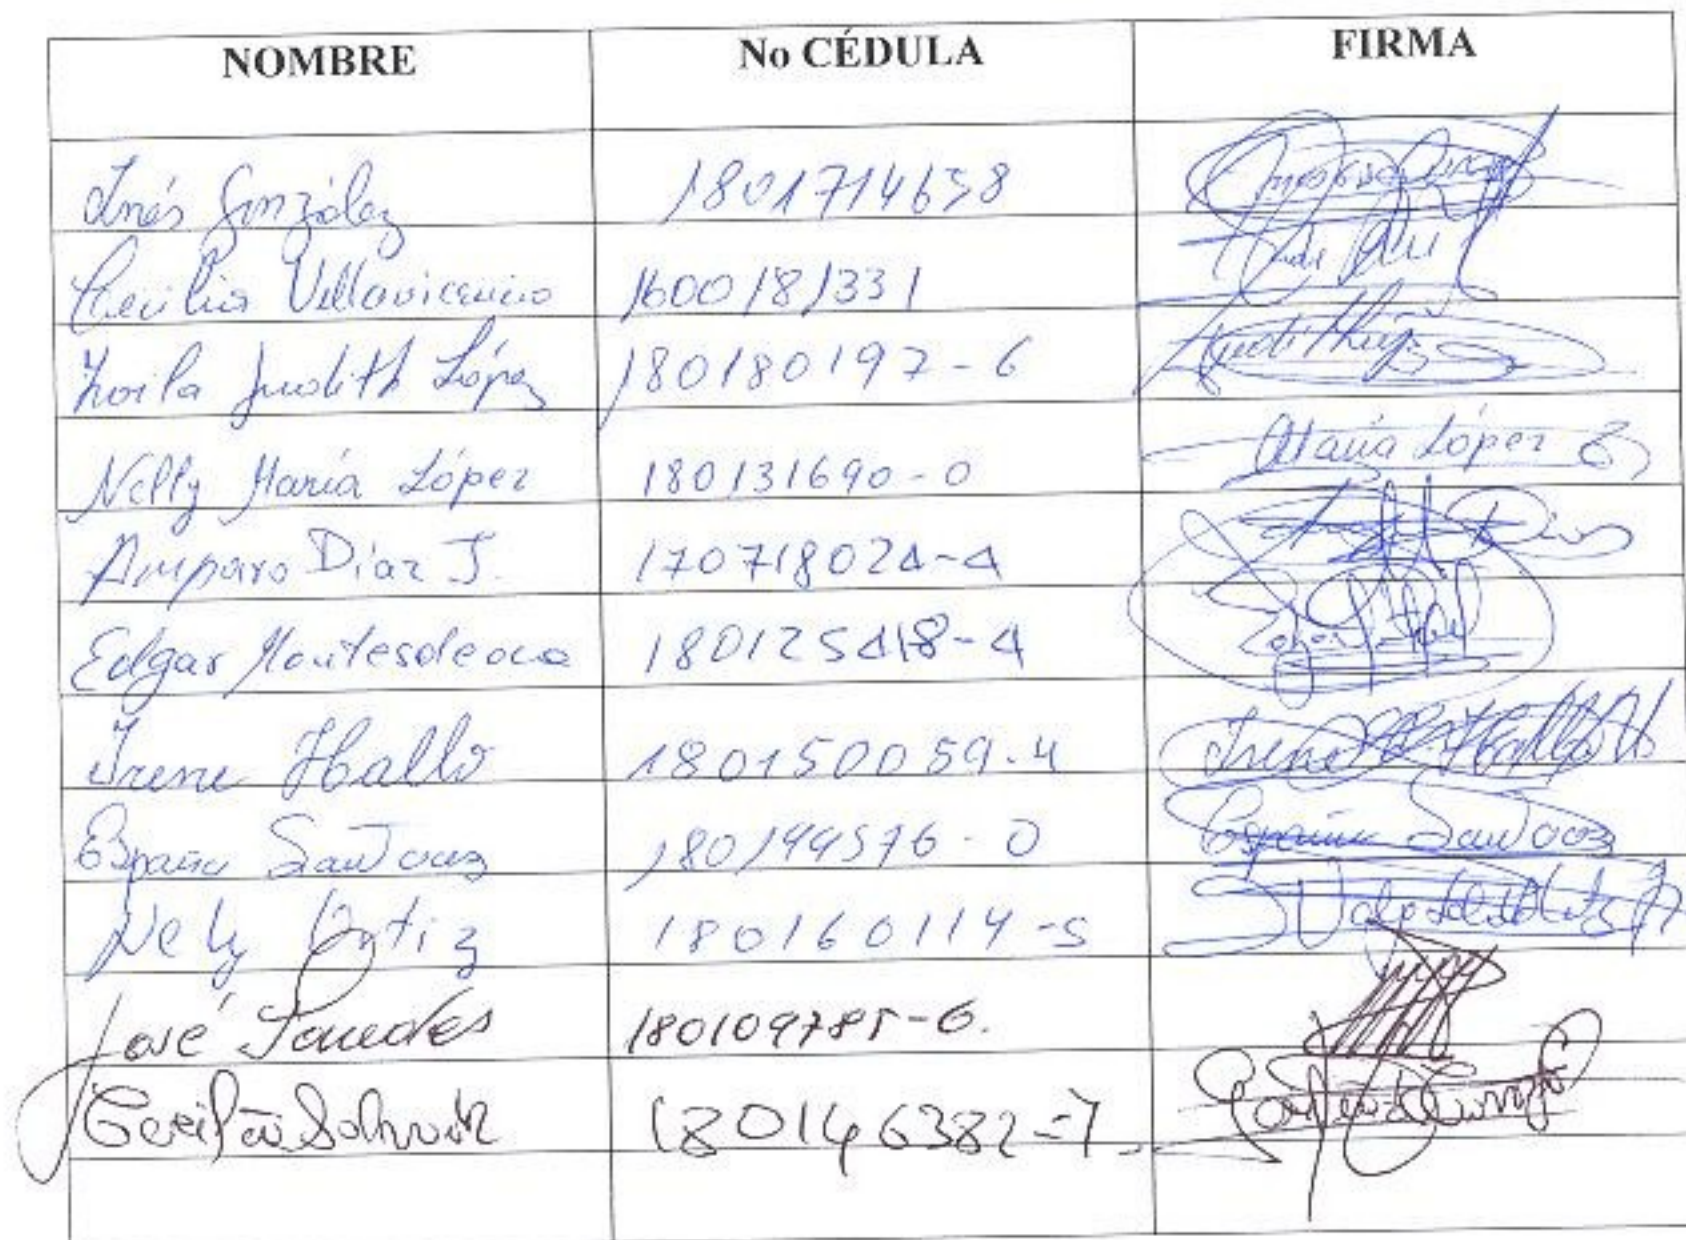 NOMBRE No CÉDULA FIRMA
Inés González 1801714638
Cecilia Villavicencio 1600181331
Zoila Judith López 180180197-6
Nelly María López 180131690-0 María López
Amparo Díaz J. 170718024-4 Díaz
Edgar Montesdeoca 180125418-4
Irene Hallo 180150059-4 Irene Hallo
España Santos 180199576-0 España
Nely Ortiz 180160114-5
José Paredes 180109785-6.
Cecilia 180146382-7